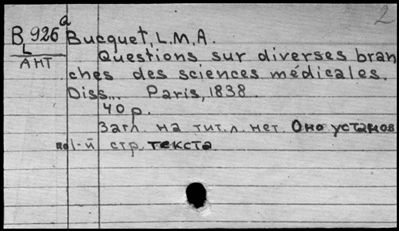 2
B 926 a Bucquet, L.M.A.
L
АНТ
Questions sur diverses bran
ches des sciences médicales.
Diss... Paris, 1838.
40 p.
Загл. на тит. л. нет. Оно установ
по 1-й стр. текста